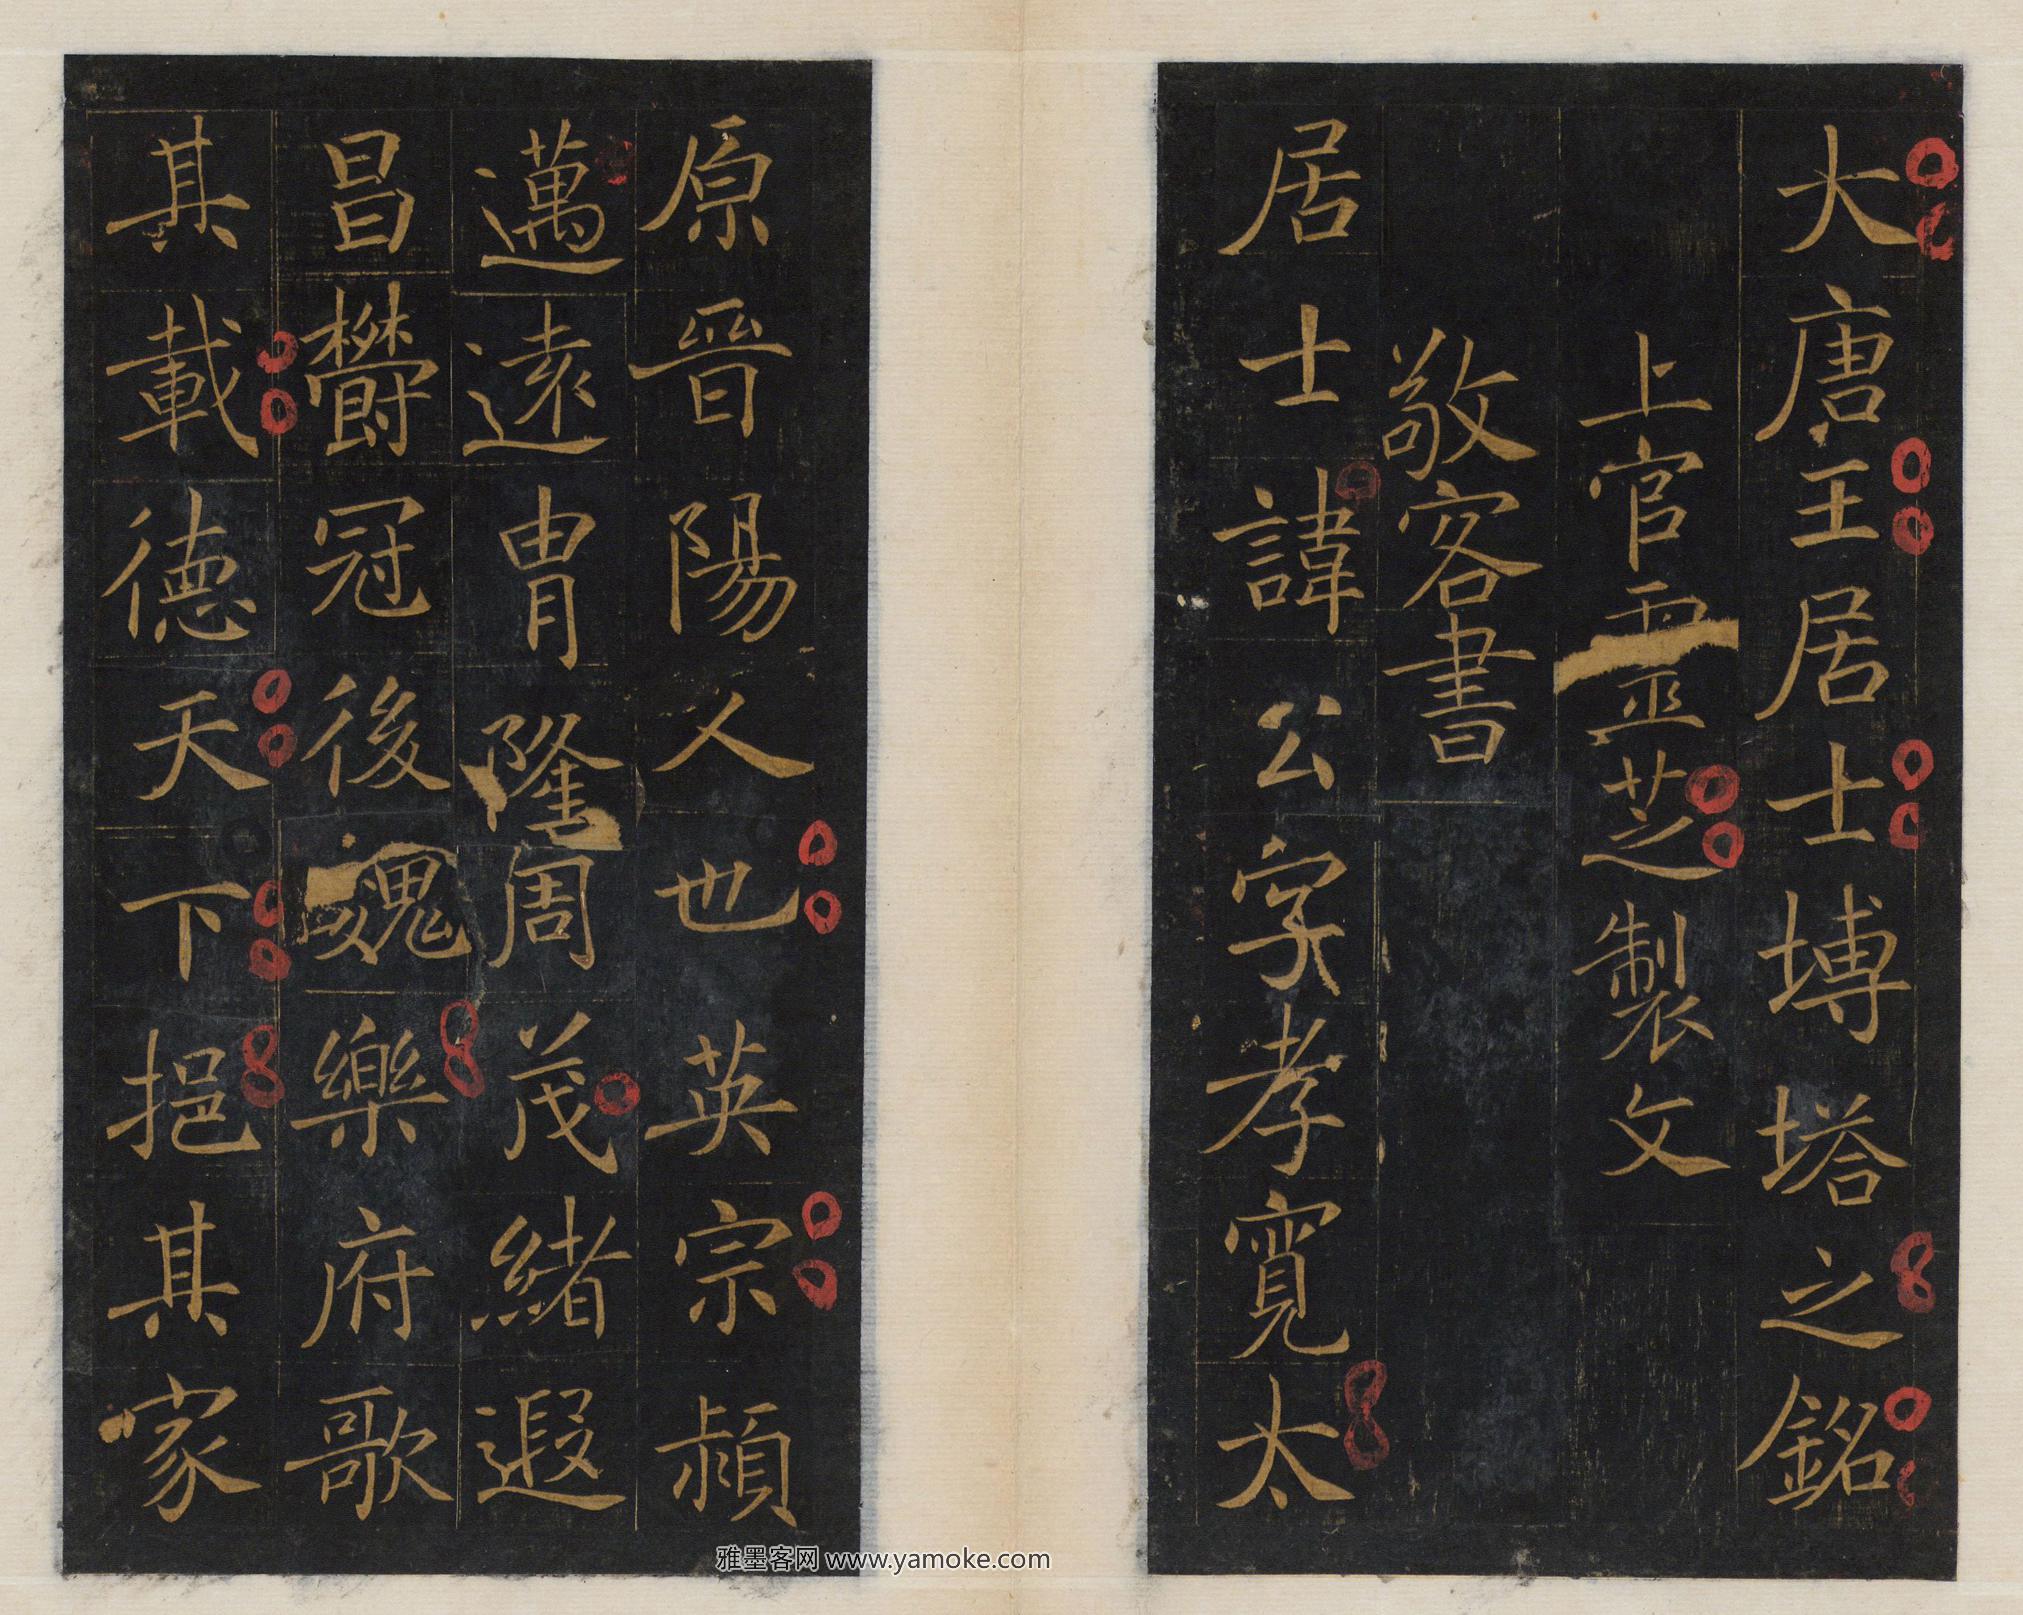 大唐王居士塼塔之銘
上官靈芝製文
敬客書
居士諱公字孝寬太
原晉陽人也英宗熲
邁遠胄隆周茂緒遐
昌欝冠後魏樂府歌
其載德天下挹其家
雅墨客网 www.yamoke.com